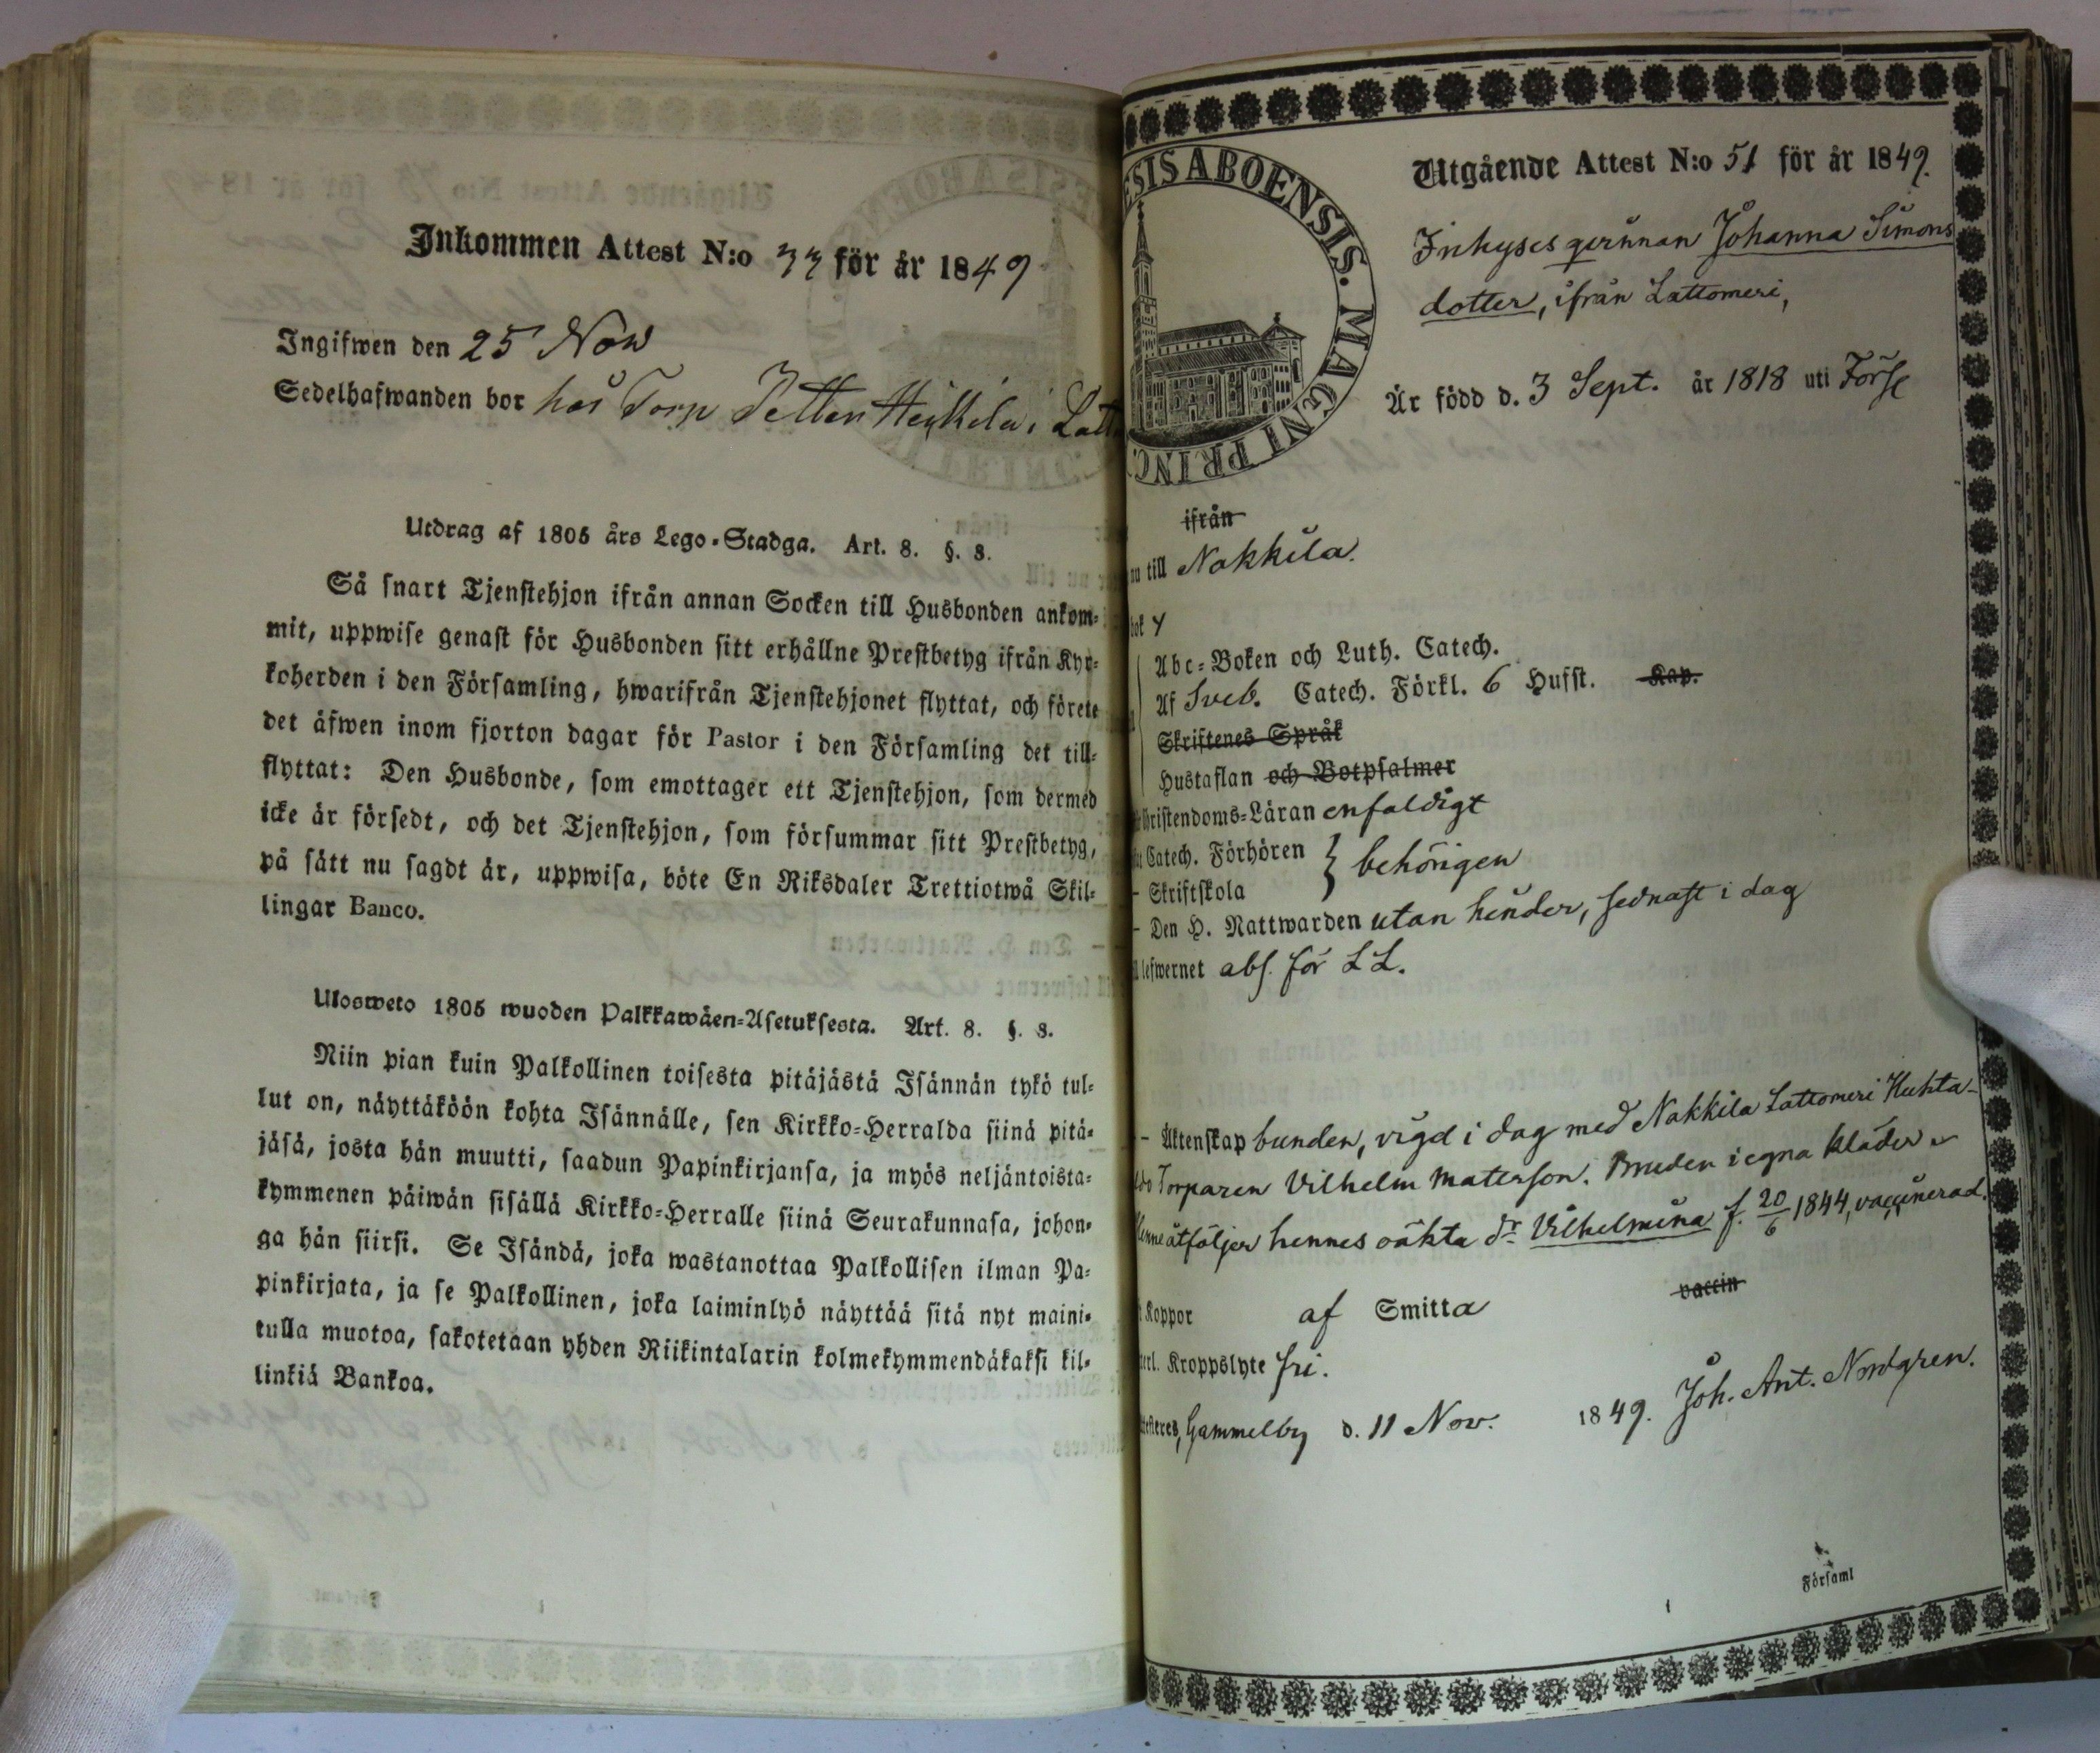 Inkommen Attest N:o 33 för år 1849
Ingifwen den 25 Nov
Sedelhafwanden bor hos Torp Petter Heikkilä i Latt
Utdrag af 1805 års Lego-Stadga. Art. 8. §. 8.
Så snart Tjenstehjon ifrån annan Socken till Husbonden ankom-
mit, uppwise genast för Husbonden sitt erhållne Prestbetyg ifrån Kyr-
koherden i den Församling, hwarifrån Tjenstehjonet flyttat, och förete
det äfwen inom fjorton dagar för Pastor i den Församling det till-
flyttat: Den Husbonde, som emottager ett Tjenstehjon, som dermed
icke är försedt, och det Tjenstehjon, som försummar sitt Prestbetyg,
på sätt nu sagdt är, uppwisa, böte En Riksdaler Trettiotwå Skil-
lingar Banco.
Ulosweto 1805 wuoden Palkkawäen-Asetuksesta. Art. 8. §. 8.
Niin pian kuin Palkollinen toisesta pitäjästä Isännän tykö tul-
lut on, näyttäköön kohta Isännälle, sen Kirkko-Herralda siinä pitä-
jäsä, josta hän muutti, saadun Papinkirjansa, ja myös neljäntoista-
kymmenen päiwän sisällä Kirkko-Herralle siinä Seurakunnasa, johon-
ga hän siirsi. Se Isändä, joka wastanottaa Palkollisen ilman Pa-
pinkirjata, ja se Palkollinen, joka laiminlyö näyttää sitä nyt maini-
tulla muotoa, sakotetaan yhden Riikintalarin kolmekymmendäkaksi kil-
linkiä Bankoa.
ESIS ABOENSIS. MAGNI PRINC.
Utgående Attest N:o 51 för år 1849.
Inhyses qvinnan Johanna Simons
dotter, ifrån Lattomeri,
Är född d. 3 Sept. år 1818 uti
ifrån
nu till Nakkila.
bok
Abc-Boken och Luth. Catech.
Af Sveb. Catech. Förkl. 6 Hufst. Kap.
Skriftenes Språk
Hustaflan och Botpsalmer
hristendoms-Läran enfaldigt
Catech. Förhören } behörigen
- Skriftskola
- Den H. Nattwarden utan hinder, sednast i dag
lefwernet abs. för L L.
- Äktenskap bunden, vigd i dag med Nakkila Lattomeri Huhta-
Torparen Vilhelm Matersson. Bruden i egna kläder
Henne åtföljer hennes oäkta dr Vilhelmina f. 20/6 1844, vaccinerad.
Koppor af Smitta vaccin
terl. Kroppslyte fri.
testeres, Gammelby d. 11 Nov. 1849. Joh. Ant. Nordgren.
Församl